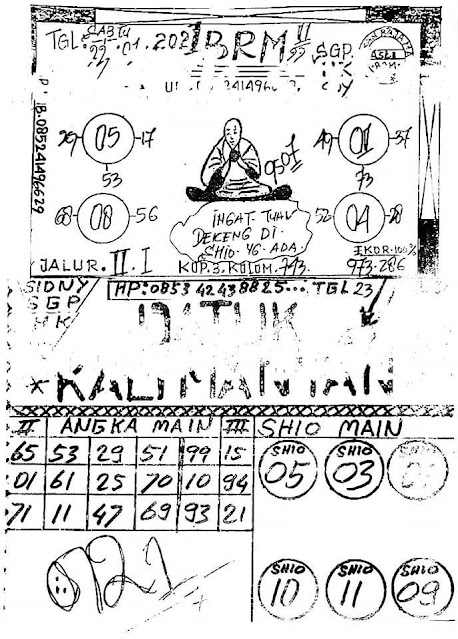 TGL: SABTU
23.01.202 BRM II SGP
ASLI
HB.085241496629
29 05 17
53
49 01 37
73
9501
68 08 56
52 04 28
INGAT TUAH
DEKENG DI.
SHIO YG ADA.
JALUR. II. I
KOP. 3. KOLOM. 7.
EKOR. 100%
973.286
SIDNY
SGP
HK
HP: 0853 4243 8825... TGL 23
DATUK
KALIMANTAN
II ANGKA MAIN III SHIO MAIN
65 53 29 51 99 15
01 61 25 70 10 94
71 11 47 69 93 21
SHIO 05 SHIO 03 SHIO
SHIO 10 SHIO 11 SHIO 09